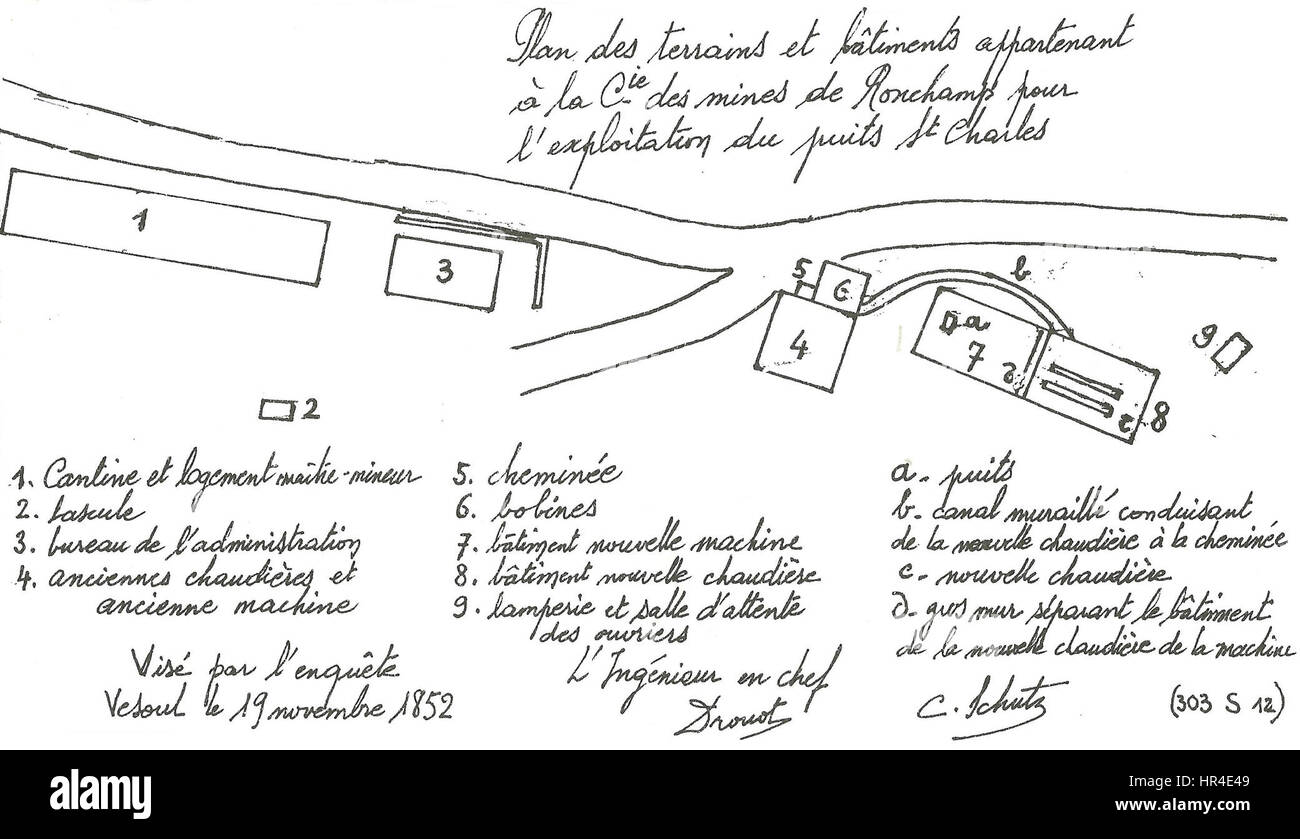 Plan des terrains et bâtiments appartenant
à la Cie des mines de Ronchamp pour
l'exploitation du puits St Charles
1
3
5
6
4
b
a
7
d
c
8
9
2
1. Cantine et logement maître-mineur
2. bascule
3. bureau de l'administration
4. anciennes chaudières et
ancienne machine
5. cheminée
6. bobines
7. bâtiment nouvelle machine
8. bâtiment nouvelle chaudière
9. lamperie et salle d'attente
des ouvriers
a. puits
b. canal muraillé conduisant
de la nouvelle chaudière à la cheminée
c. nouvelle chaudière
d. gros mur séparant le bâtiment
de la nouvelle chaudière de la machine
Visé par l'enquête
Vesoul le 19 novembre 1852
L'Ingénieur en chef
Drouot
C. Schutz
(303 S 12)
alamy
Image ID: HR4E49
www.alamy.com